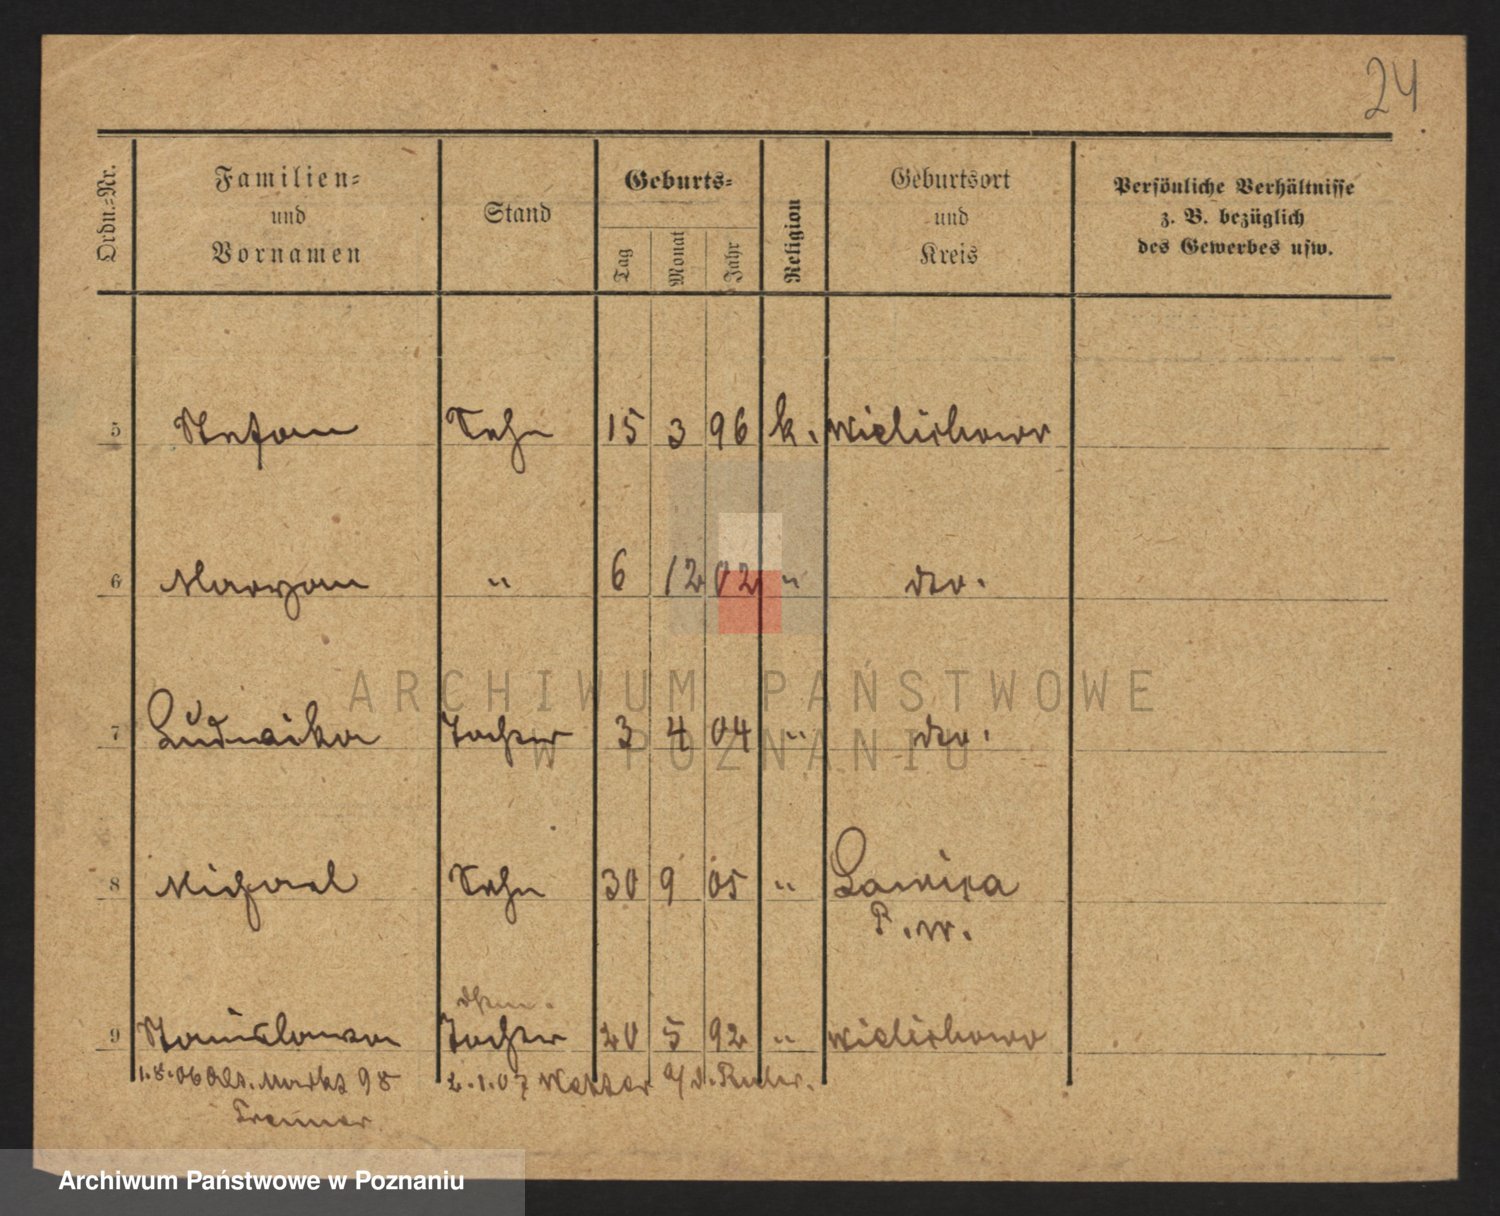 24
Ordn.=Nr.
Familien=
und
Vornamen
Stand
Geburts=
Tag
Monat
Jahr
Religion
Geburtsort
und
Kreis
Persönliche Verhältnisse
z. B. bezüglich
des Gewerbes usw.
5 Stefan Sohn 15 3 96 k. Wielichowo
6 Maryan " 6 12 02 " dto.
7 Ludwika Tochter 3 4 04 " dto.
8 Michael Sohn 30 9 05 "
P. W.
9 Stanislawa Tochter 20 5 92 " Wielichowo
1.8.06 Markt 98
2.1.07 Wetter a/d. Ruhr.
ARCHIWUM PAŃSTWOWE
W POZNANIU
Archiwum Państwowe w Poznaniu